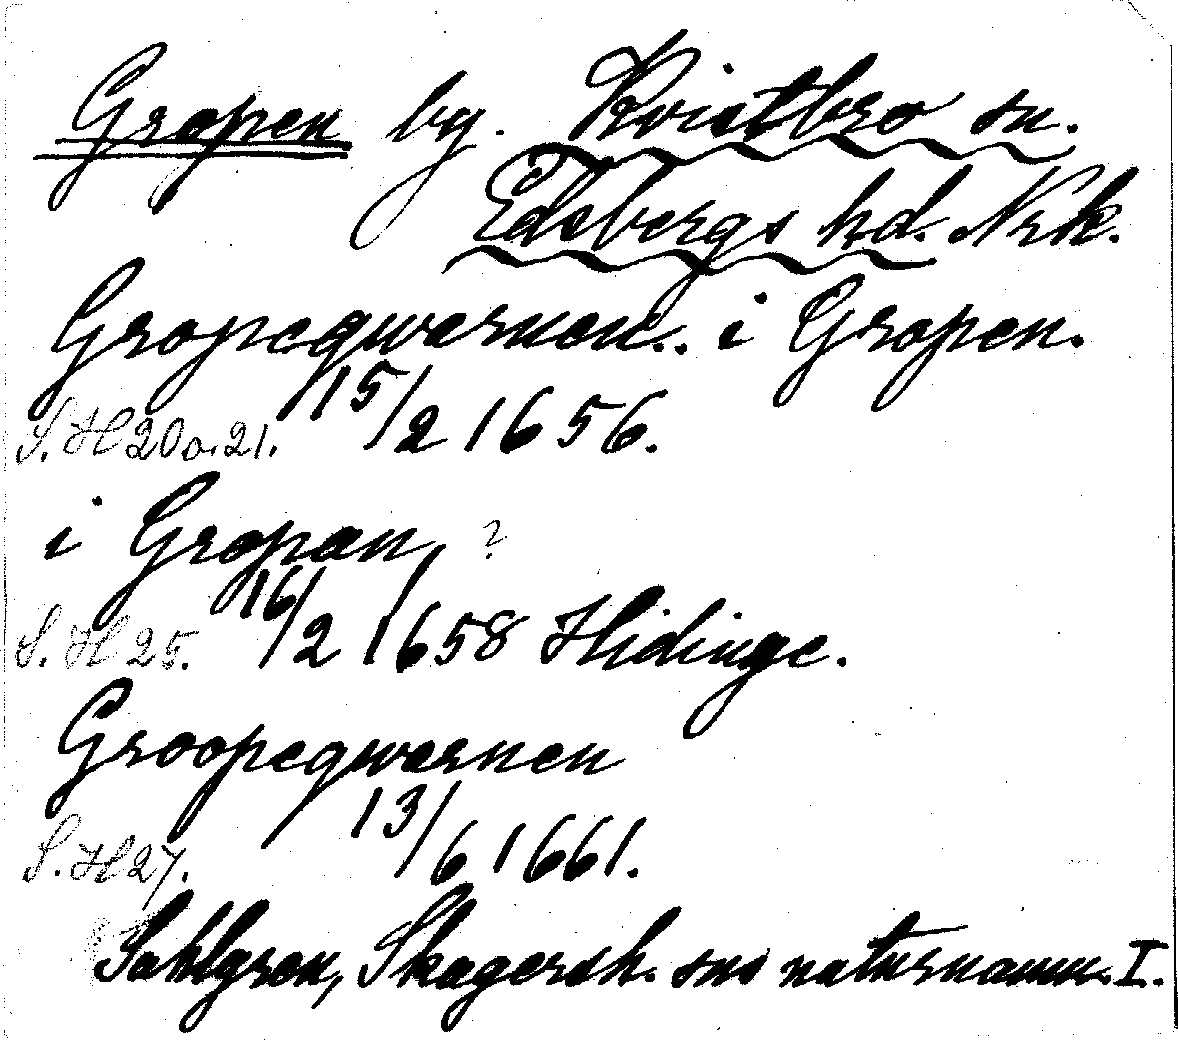 Gropen by. Kvistbro sn.
Edsbergs hd. Nrk.
Gropeqwarnen.. i Gropen.
15/2 1656.
S. H 20 o. 21.
i Gropan, ?
16/2 1658 Hidinge.
S. H 25.
Groopeqwarnen
13/6 1661.
S. H 27.
Sahlgren, Skagersh. sns naturnamn. I.